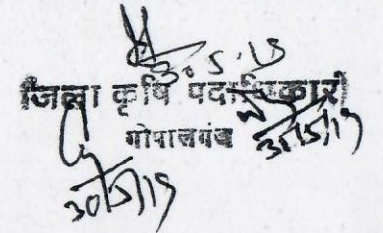 3.5.19
जिला कृषि पदाधिकारी
गोपालगंज
31/5/19
30/5/19